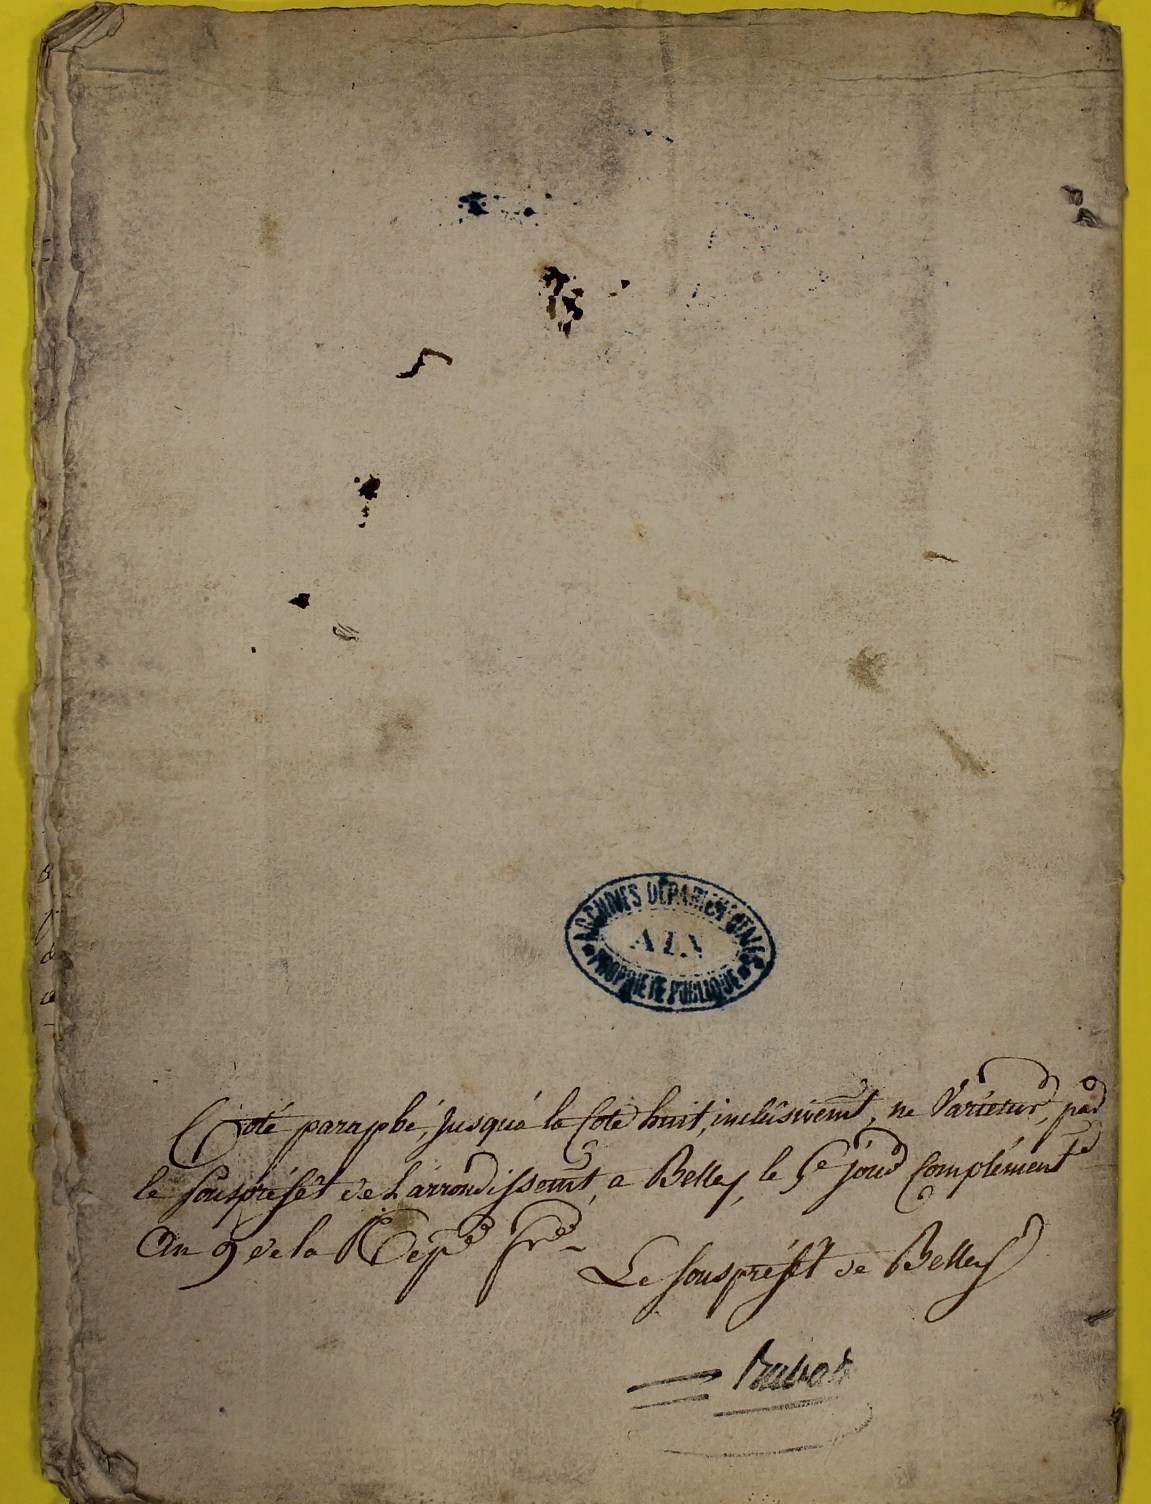 ARCHIVES DÉPARTEMENTALES
AIN
PROPRIÉTÉ PUBLIQUE
Coté paraphé, jusqu'à la Cote huit, inclusivemt, ne Varietur, par
le souspréfêt de Larrondissemt, a Belley, le 5e jour Complémentre
An 9 de la Repe fre
Le souspréfêt de Belley
Rubat